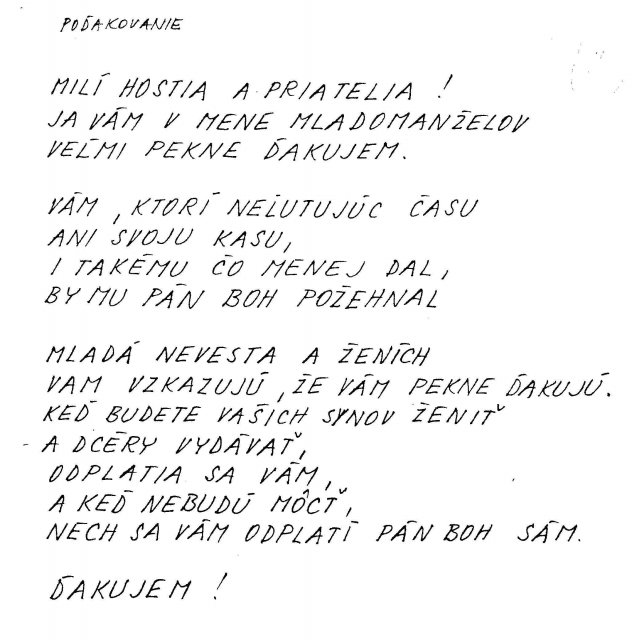 POĎAKOVANIE
MILÍ HOSTIA A PRIATELIA !
JA VÁM V MENE MLADOMANŽELOV
VEĽMI PEKNE ĎAKUJEM.
VÁM , KTORÍ NEĽUTUJÚC ČASU
ANI SVOJU KASU,
I TAKÉMU ČO MENEJ DAL,
BY MU PÁN BOH POŽEHNAL
MLADÁ NEVESTA A ŽENÍCH
VAM VZKAZUJÚ , ŽE VÁM PEKNE ĎAKUJÚ.
KEĎ BUDETE VAŠICH SYNOV ŽENIŤ
A DCÉRY VYDÁVAŤ,
ODPLATIA SA VÁM,
A KEĎ NEBUDÚ MÔCŤ,
NECH SA VÁM ODPLATÍ PÁN BOH SÁM.
ĎAKUJEM !